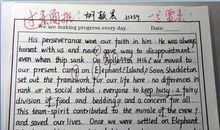 We are making progress every day. Date:
His perseverance won our faith in him. He was always
honest with us and never gave way to disappointment
even when ship sank. On April 11th 1916 we moved to
our present camp on Elephant Island. Soon, Shackleton
set out the framework for our life here: no differences in
rank or in social status; everyone to keep busy; a fairy
division of food and bedding; and a concern for all.
This team-spirit contributed to the morale of the crew
and saved our lives. Once we were settled on Elephant